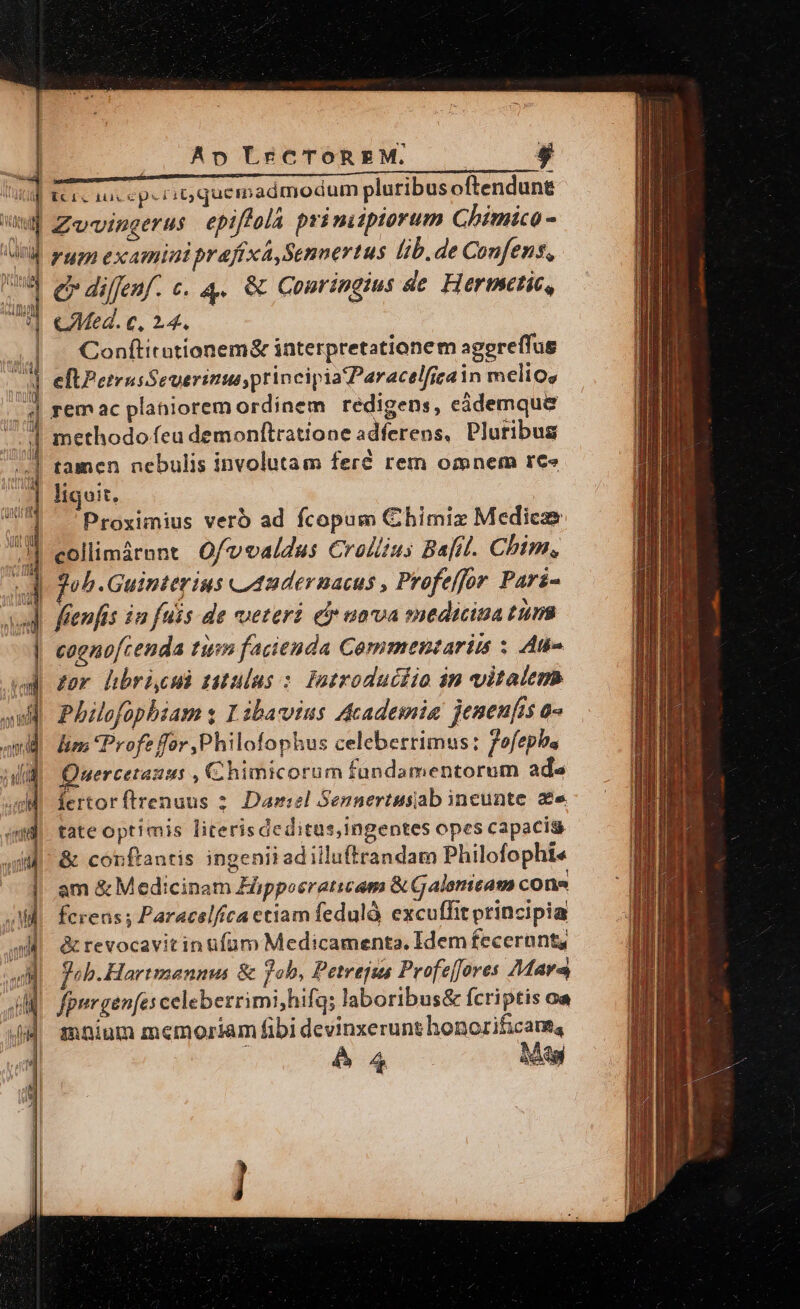 AD LECTOREM.
quemadmodum pluribus oſtendunt
Zvvingerus epiſtolâ principiorum Chimico-
rum examini præfixâ, Sennertus lib. de Conſens.
& diſſenſ. c. 4. & Conringius de Hermetic.
Med. c. 14.
Conſtitutionem & interpretationem aggreſſus
eſt Petrus Severinus, principia Paracelſica in melio-
rem ac planiorem ordinem redigens, eâdemque
methodo ſeu demonſtratione adſerens. Pluribus
tamen nebulis involutam ferè rem omnem re-
liquit.
Proximius verò ad ſcopum Chimiæ Medicæ
collimârunt Oſvvaldus Crollius Baſil. Chim.
Joh. Guinterius Andernacus, Profeſſor Pari-
ſienſis in ſuis de veteri & nova medicina tùm
cognoſcenda tùm facienda Commentariis : Au-
tor libri, cui titulus : Introductio in vitalem
Philoſophiam ; Libavius Academiæ Jenenſis o-
lim Profeſſor, Philoſophus celeberrimus : Joſephus
Quercetanus, Chimicorum fundamentorum ad-
ſertor ſtrenuus : Daniel Sennertus, ab ineunte æ-
tate optimis literis deditus, ingentes opes capacis
& conſtantis ingenii ad illuſtrandam Philoſophi-
am & Medicinam Hippocraticam & Galenicam con-
ferens ; Paracelſica etiam ſedulò excuſſit principia
& revocavit in uſum Medicamenta. Idem fecerunt,
Joh. Hartmannus & Joh. Petrejus Profeſſores Mar-
ſpurgenſes celeberrimi, hiſq; laboribus & ſcriptis o-
mnium memoriam ſibi devinxerunt honorificam.
A 4